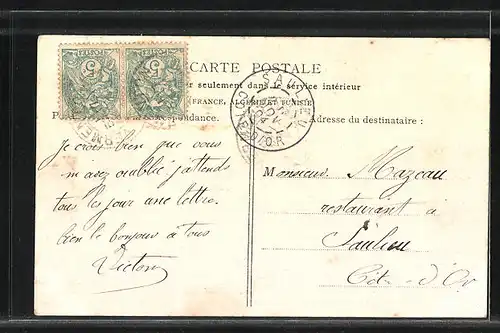 5 5
CARTE POSTALE
seulement dans le service intérieur
FRANCE, ALGERIE ET TUNISIE
correspondance. Adresse du destinataire :
SAULIEU
COTE-D'OR
Je crois bien que vous
m avez oublié j'attends
tous les jour une lettre.
bien le bonjour à tous
Victor
Monsieur Mazeau
restaurant à
Saulieu
Côte-d'Or